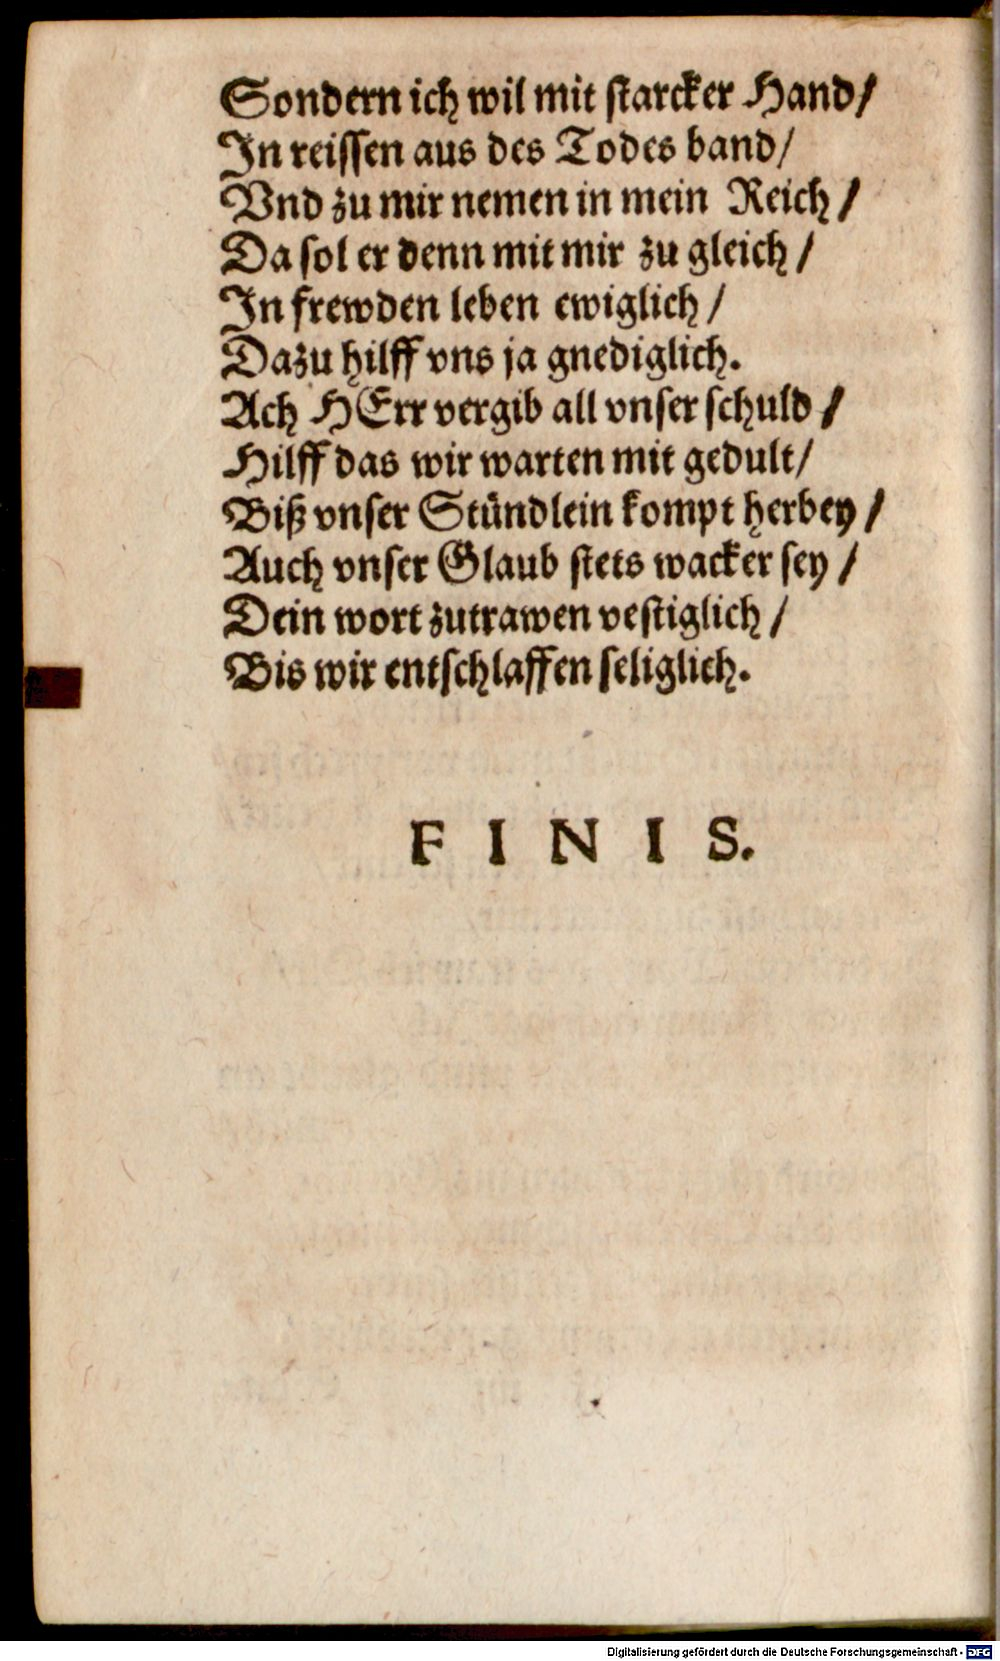 Sondern ich wil mit starcker Hand/
In reissen aus des Todes band/
Vnd zu mir nemen in mein Reich/
Da sol er denn mit mir zu gleich/
In frewden leben ewiglich/
Dazu hilff vns ja gnediglich.
Ach HErr vergib all vnser schuld/
Hilff das wir warten mit gedult/
Biß vnser Stündlein kompt herbey/
Auch vnser Glaub stets wacker sey/
Dein wort zutrawen vestiglich/
Bis wir entschlaffen seliglich.
F I N I S.
Digitalisierung gefördert durch die Deutsche Forschungsgemeinschaft - DFG